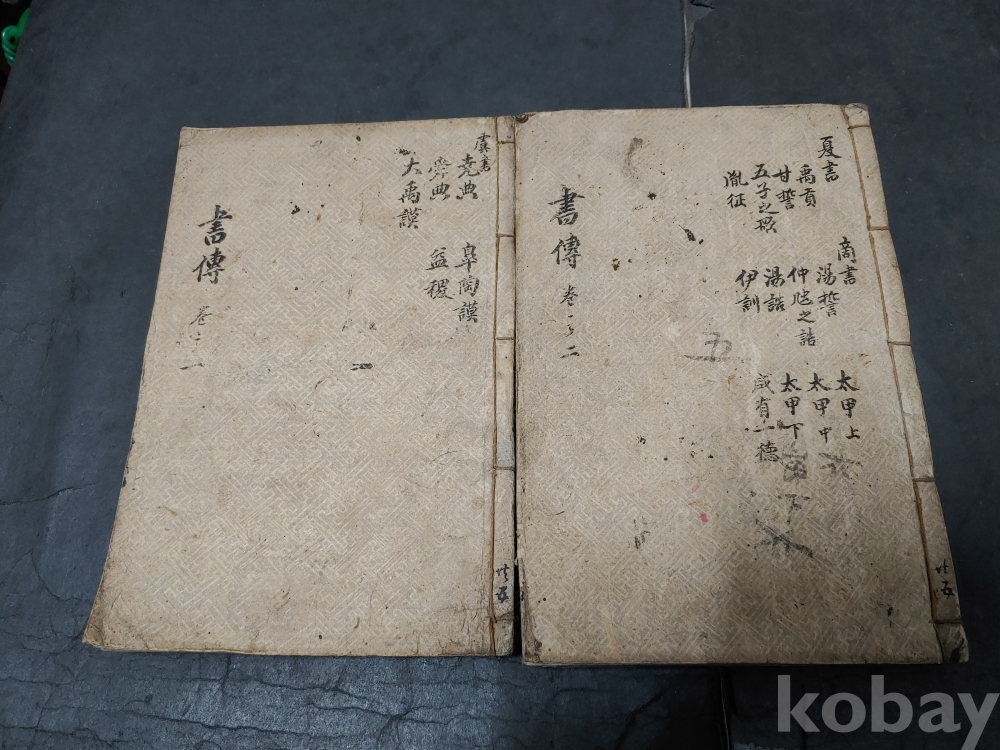 虞書
堯典
舜典
大禹謨
皐陶謨
益稷
書傳
卷之一
共五
夏書
禹貢
甘誓
五子之歌
胤征
商書
湯誓
仲虺之誥
湯誥
伊訓
太甲上
太甲中
太甲下
咸有一德
五
書傳
卷之二
共五
kobay